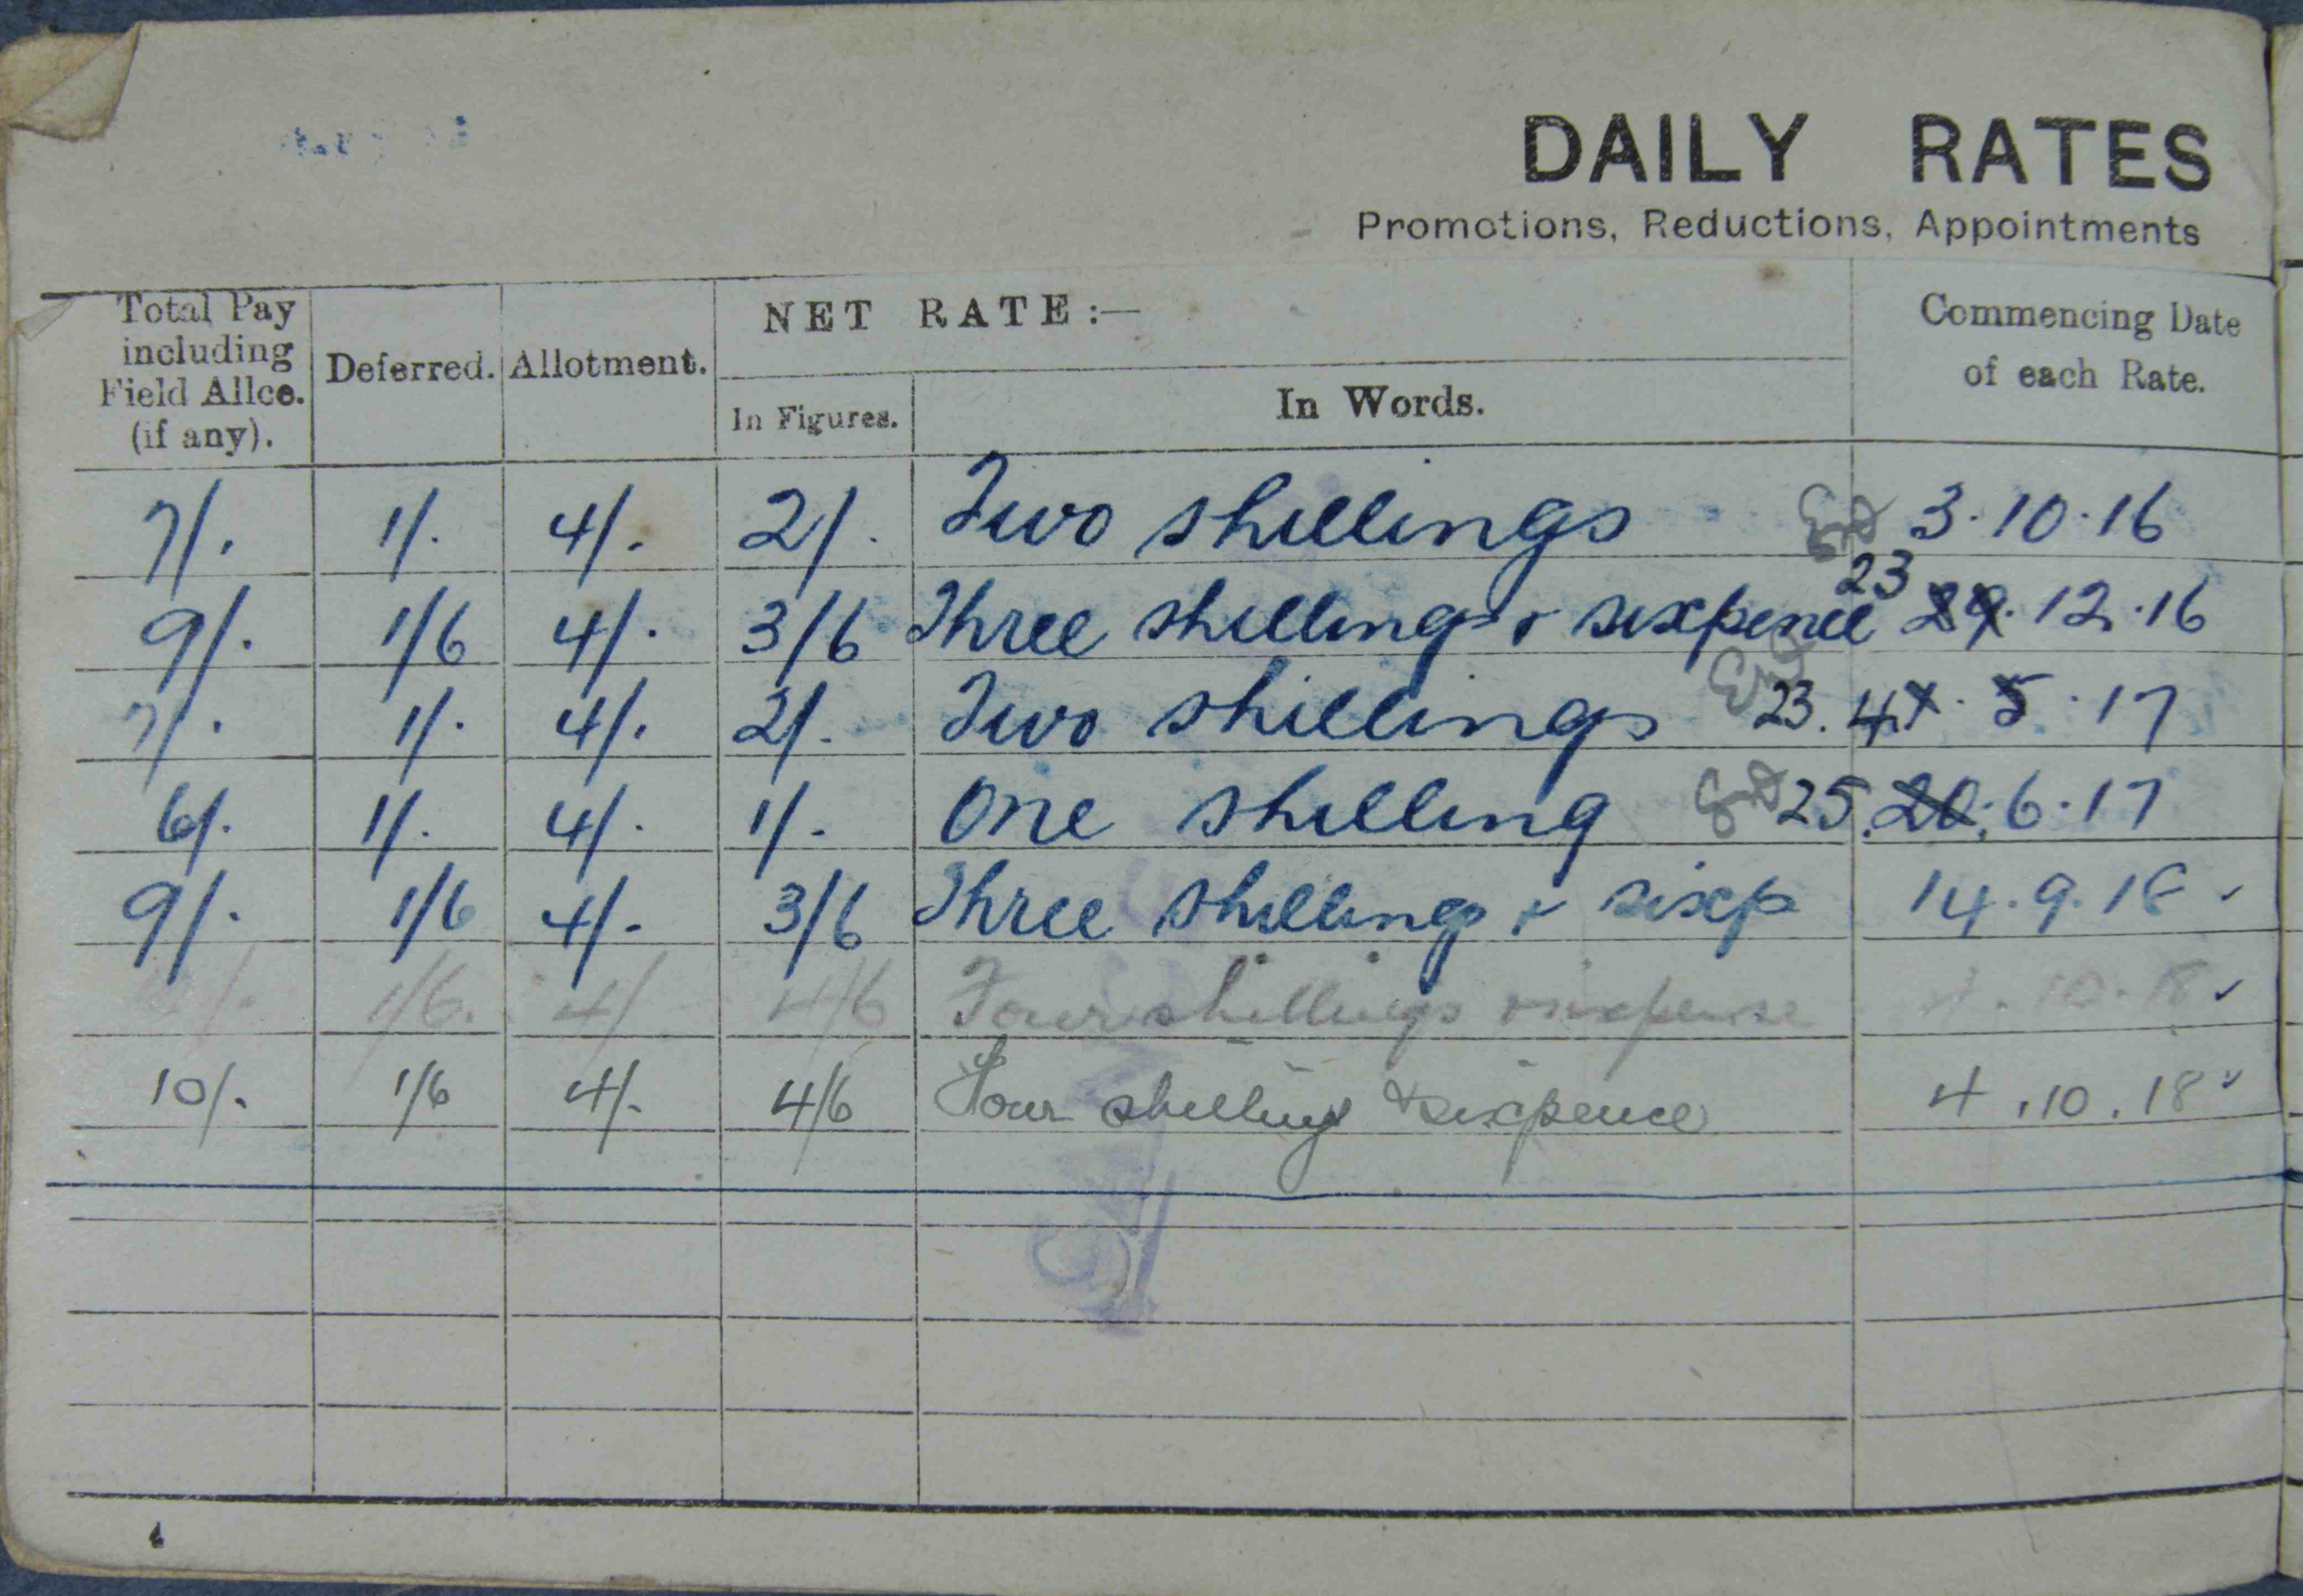 DAILY RATES
Promotions, Reductions, Appointments
Total Pay including Field Allce. (if any). Deferred. Allotment. NET RATE:— In Figures. In Words. Commencing Date of each Rate.
7/. 1/. 4/. 2/. Two shillings 3.10.16
9/. 1/6 4/. 3/6 Three shillings & sixpence 23 29.12.16
7/. 1/. 4/. 2/. Two shillings 23.4 5.17
6/. 1/. 4/. 1/. One shilling 25.20.6.17
9/. 1/6 4/- 3/6 Three shillings & sixp 14.9.18
1/6. 4/ 4/6 Four shillings & sixpense 4.10.18
10/- 1/6 4/- 4/6 Four shillings & sixpence 4.10.18